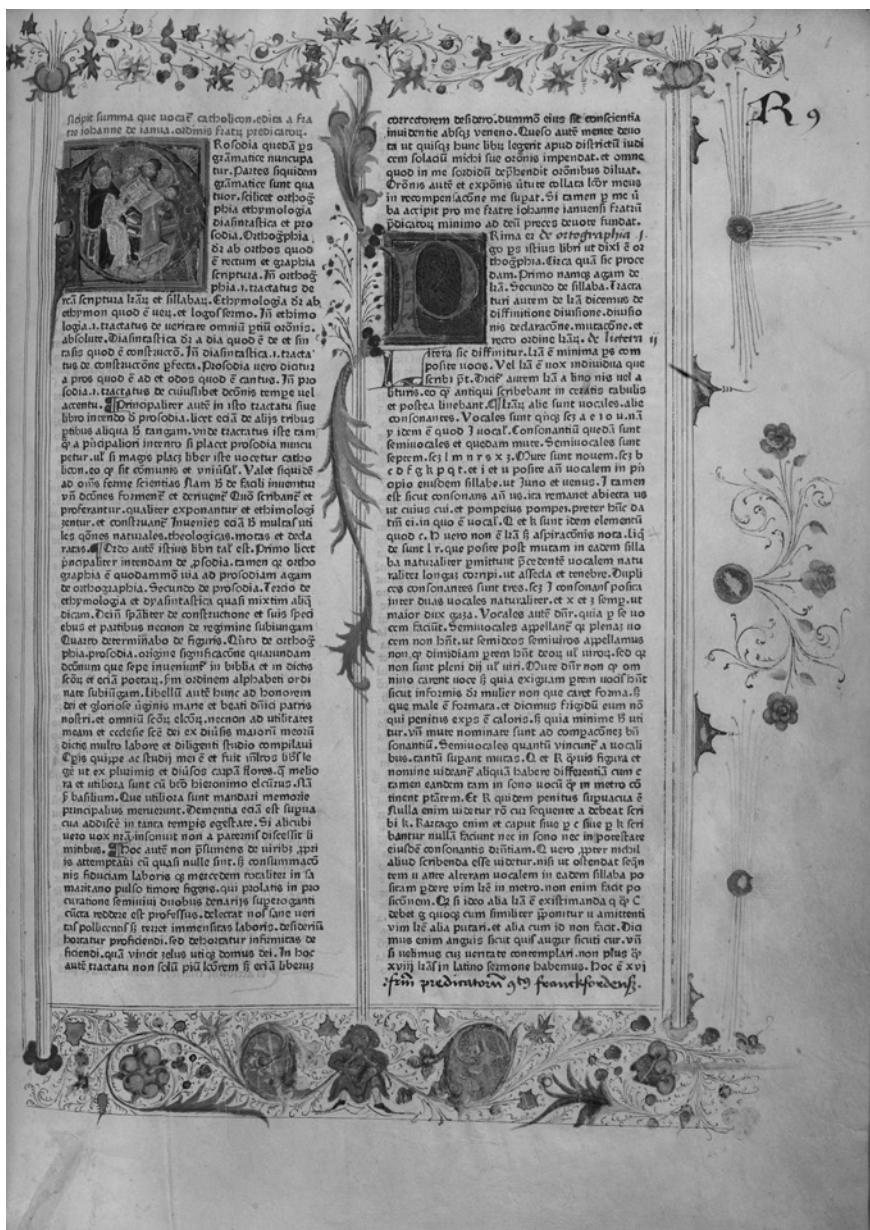 R 9
ſcipit ſumma que uocat᷑ catholicon.edita a fra
tre iohanne de ianua.ordinis fratꝝ predicatoꝝ.
Roſodia quedā ps
grāmatice nuncupa
tur.Partes ſiquidem
grāmatice ſunt qua
tuor.ſcilicet orthog̃
phia ethymologia
diaſintaſtica et pro
ſodia.Orthog̃phia
dr̄ ab orthos quod
ē rectum et graphia
ſcriptura.In̄ orthog̃
phia.i.tractatus de
ethymon quod ē ueꝝ.et logos ſermo.In̄ ethimo
logia.i.tractatus de ueritate omniū ꝑtiū orōnis.
abſolute.Diaſintaſtica dr̄ a dia quod ē de et ſin
taſis quod ē conſtructō.In̄ diaſintaſtica.i.tracta
tus de conſtructōne ꝑfecta.Proſodia uero dicitur
a pros quod ē ad et odos quod ē cantus.In̄ pro
ſodia.i.tractatus de cuiuſlibet dcōnis tempe uel
accentu.Principaliter autē in iſto tractatu ſiue
libro intendo đ proſodia.licet eciā de alijs tribus
ꝑtibus aliqua tangam.vnde tractatus iſte tam
petur.ul̄ ſi magis placꝫ liber iſte uocetur catho
licon.eo ꝙ ſit comunis et vniuſal̓.Valet ſiquidē
ad om̄s ferme ſcientias
proferantur.qualiter ethimologi
zentur.et conſtruant᷑ Inuenies eciā multas uti
les qōnes naturales.theologicas.motas et decla
ratas.Ordo autē iſtius libri tal̓ eſt.Primo licet
pͥncipaliter intendam de ꝓſodia.tamen ꝙ ortho
graphia ē quodammō uia ad proſodiam agam
de orthographia.Secundo de proſodia.Tercio de
ethymologia et dyaſintaſtica quaſi mixtim aliq̄
dicam.Dein̄ ſpāliter de conſtructione et ſuis ſpeci
ebus et partibus necnon de regimine ſubiungam
Quarto determinabo de figuris.Qn̄to de orthog̃
phia.proſodia.origine ſignificacōne quarundam
dcōnum que ſepe inueniunt᷑ in biblia et in dictis
ſcōꝝ et eciā poetaꝝ.ſm ordinem alphabeti ordi
nate ſubiūgam.Libellū autē hunc ad honorem
dei et glorioſe ūginis marie et beati dn̄ici patris
noſtri.et omniū ſcōꝝ elcōꝝ.necnon ad utilitatē
meam et eccleſie ſcē dei ex diūſis maioꝝ meoꝝ
dictis multo labore et diligenti ſtudio compilaui
ge ut ex plurimis et diūſos carpā flores.
ra et utiliora ſunt cū bt̄o hieronimo
baſilium.Que utiliora ſunt mandari memorie
principalius meruerunt.Dementia eciā eſt ſupua
cua addiſcē in tanta tempis egeſtate.Si alicubi
uero uox nr̄a inſonuit non a paternis diſceſſit li
mitibus.Hoc autē non pͥſumens de uiribꝫ ꝓpri
is attemptaui cū quaſi nulle ſint.ſꝫ conſummacō
nis fiduciam laboris mercedem in ſa
maritano pulſo timore figens.qui prolatis in pro
curatione ſemiuiui duobus denarijs ſuperoganti
cūcta reddere eſt profeſſus.delectat nos ſane ueri
tas pollicentis ſꝫ terret immenſitas laboris.deſideriū
hortatur proficiendi.ſed dehortatur infirmitas de
ficiendi.quā vincit zelus utiqꝫ domus dei.In hoc
autē tractatu non ſolū piū lc̄orem ſꝫ eciā liberuꝫ
correctorem deſidero.dummō eius ſit conſcientia
inuidentie abſqꝫ veneno.Queſo autē mente deuo
ta ut quiſqꝫ hunc libꝝ legerit apud diſtrictū iudi
cem ſolaciū michi ſue orōnis impendat.et omne
quod in me ſordidū dep̄hendit orōnibus diluat.
Orōnis autē et expōnis ūtute collata lc̄or meus
in recompenſacōne me ſupat.Si tamen ꝑ me ū
ba accipit pro me fratre iohanne ianuenſi fratrū
p̄dicatoꝝ minimo ad deū preces deuote fundat.
Rima de ortographia
go ps iſtius libri ut dixi ē or
thog̃phia.Circa quā ſic proce
dam.Primo namqꝫ agam de
lr̄a.Secundo de ſillaba.Tracta
turi autem de lr̄a dicemus de
diffinitione diuiſione.diuiſio
nis declaracōne.mutacōne.et
recto ordine lr̄aꝝ. de littera ij
itera ſic diffinitur.lr̄a ē minima ps com
poſite uocis.Vel lr̄a ē uox indiuidua que
ſcribi pt̄.Dicit᷑ autem lr̄a a lino nis uel a
lituris.eo ꝙ antiqui ſcribebant in ceratis tabulis
et poſtea linebant.lr̄aꝝ alie ſunt uocales.alie
conſonantes.Vocales ſunt qn̄qꝫ ſcꝫ a e i o u.nā
y idem ē quod J uocal̓.Conſonantiū quedā ſunt
ſemiuocales et quedam mute.Semiuocales ſunt
ſeptem.ſcꝫ l m n r s x z.Mute ſunt nouem.ſcꝫ b
c d f g k p q t.et i et u poſite an̄ uocalem in pn̄
cipio eiuſdem ſillabe.ut Juno et uenus.J tamen
eſt ſicut conſonans an̄ us.ita remanet abiecta us
ut cuius cui.et pompeius pompei.preter huic da
tm̄ ei.in quo ē uocal̓.Q et k ſunt idem elementū
quod c.h uero non ē lr̄a ſꝫ aſpiracōnis nota.liq̄
de ſunt l r.que poſite poſt mutam in eadem ſilla
ba naturaliter ꝑmittunt p̄cedentē uocalem natu
raliter longaꝫ corripi.ut aſſecla et tenebre.Dupli
ces conſonantes ſunt tres.ſcꝫ J conſonans poſita
inter duas uocales naturaliter.et x et z ſemꝑ.ut
maior dux gaza.Vocales autē dn̄r.quia ꝑ ſe uo
cem faciūt.Semiuocales appellant᷑ ꝙ plenaꝫ uo
cem non hn̄t.ut ſemideos ſemiuiros appellamus
non ꝙ dimidiam ꝑtem hn̄t deoꝝ ul̄ uiroꝝ.ſed ꝙ
non ſunt pleni dij ul̄ uiri.Mute dn̄r non ꝙ om
nino carent uoce ſꝫ quia exiguam ꝑtem uocis hn̄t
ſicut informis dr̄ mulier non que caret forma.ſꝫ
que male ē formata.et dicimus frigidū eum nō
qui penitus exps ē caloris.ſꝫ quia minime uti
tur.vn̄ mute nominate ſunt ad compacōnē bn̄
ſonantiū.Semiuocales quantū vincunt᷑ a uocali
bus.tantū ſupant mutas.Q et K q̄uis figura et
nomine uideant᷑ aliquā habere differentiā cum c
tamen eandem tam in ſono uocū ꝙ̄ in metro cō
tinent ptātem.Et K quidem penitus ſupuacua ē
Nulla enim uidetur rō cur ſequente a debeat ſcri
bi k.Kartago enim et caput ſiue ꝑ c ſiue ꝑ k ſcri
bantur nullā faciunt nec in ſono nec in poteſtate
eiuſdē conſonantis dr̄ntiam.Q uero ꝓpter nichil
aliud ſcribenda eſſe uidetur.niſi ut oſtendat ſeqn̄
tem u ante alteram uocalem in eadem ſillaba po
ſitam ꝑdere vim lr̄e in metro.non enim facit po
ſicōnem.Qꝫ ſi ideo alia lr̄a ē exiſtimanda q ꝙ̄ C
debet g quoqꝫ cum ſimiliter p̄ponitur u amittenti
vim lr̄e alia putari.et alia cum id non facit.Dici
mus enim anguis ſicut quis augur ſicuti cur.vn̄
ſi uelimus cuꝫ ueritate contemplari.non plus ꝙ̄
xviij lr̄as in latino ſermone habemus.hoc ē xvj
frm̄ predicatorū franckfordenſ.